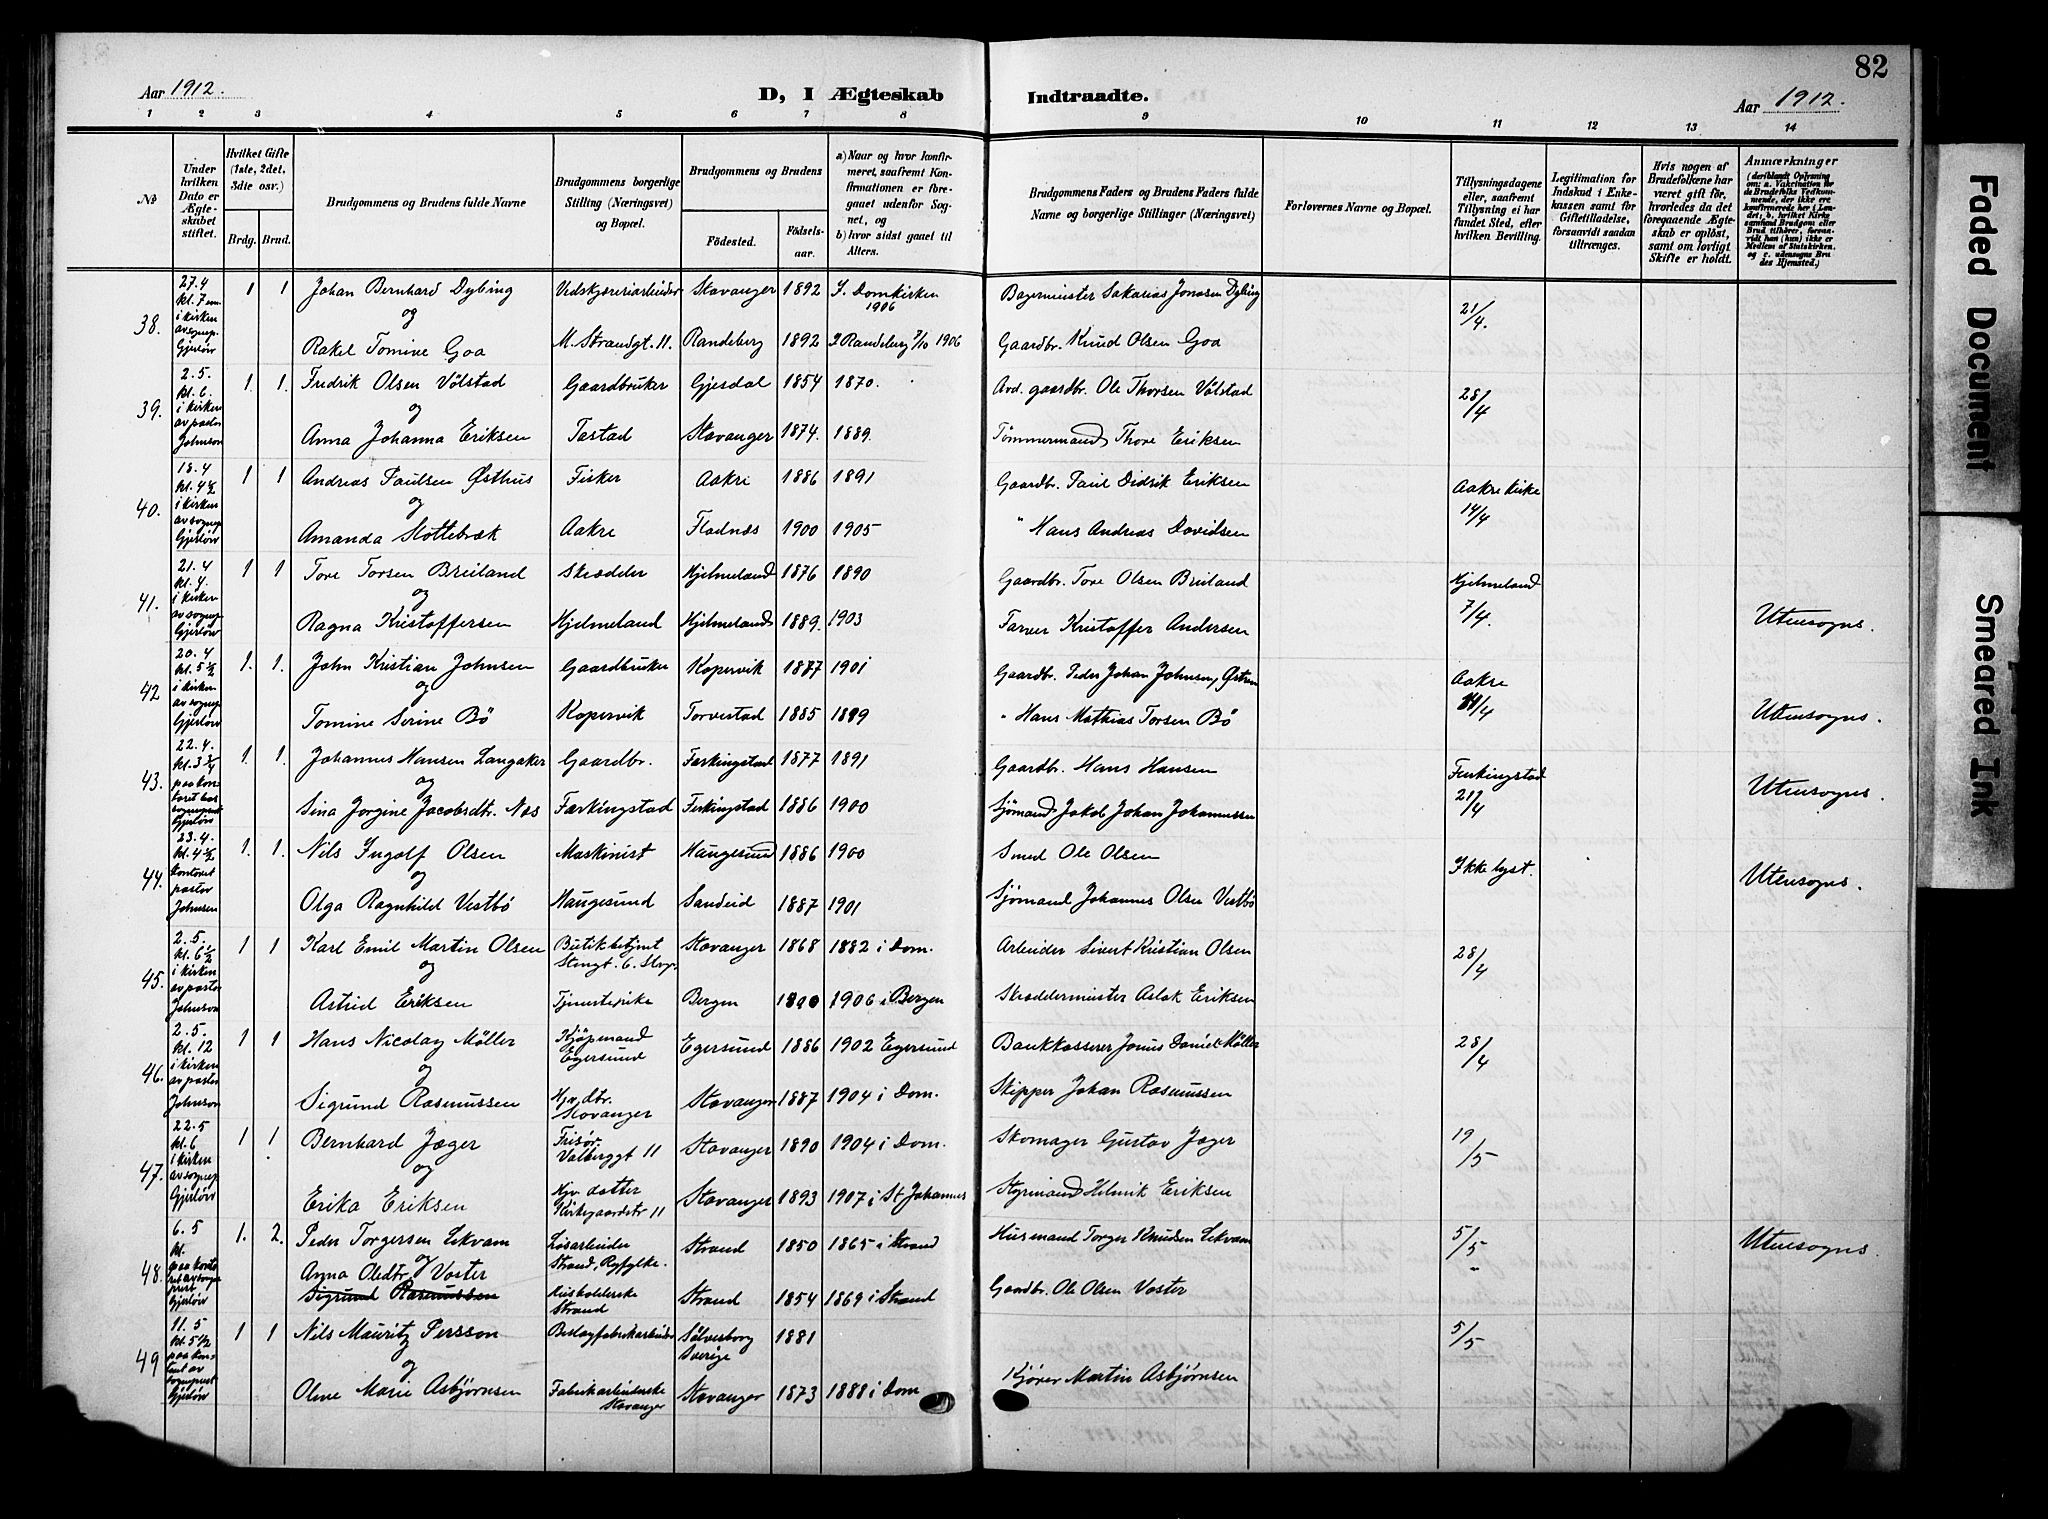 82
Aar 1912.
D, I Ægteskab Indtraadte.
Aar 1912.
1 2 3 4 5 6 7 8 9 10 11 12 13 14
No
Under hvilken Dato er Ægteskabet stiftet.
Hvilket Gifte (1ste, 2det, 3die osv.)
Brdg. Brud.
Brudgommens og Brudens fulde Navne
Brudgommens borgerlige Stilling (Næringsvei) og Bopæl.
Brudgommens og Brudens
Fødested. Fødselsaar.
a) Naar og hvor konfirmeret, saafremt Konfirmationen er foregaaet udenfor Sognet, og
b) hvor sidst gaaet til Alters.
Brudgommens Faders og Brudens Faders fulde Navne og borgerlige Stillinger (Næringsvei)
Forlovernes Navne og Bopæl.
Tillysningsdagene eller, saafremt Tillysning ei har fundet Sted, efter hvilken Bevilling.
Legitimation for Indskud i Enkekassen samt for Giftetilladelse, forsaavidt saadan tiltrænges.
Hvis nogen af Brudefolkene har været gift før, hvorledes da det foregaaende Ægteskab er opløst, samt om lovligt Skifte er holdt.
Anmærkninger
38. 27.4 kl. 7 em. i kirken av sognep. Gjerløv 1 1 Johan Bernhard Dybing Vedskjæreriarbeider Stavanger 1892 I Domkirken 1906 Bagermeister Sakarias Jonasen Dybing 21/4.
og
Rakel Tomine Goa M. Strandgt. 11. Randeberg 1892 I Randeberg 7/10 1906 Gaardbr. Knud Olsen Goa
39. 2.5. kl. 6. i kirken av pastor Johnson 1. 1. Fredrik Olsen Vølstad Gaardbruker Gjesdal 1854 1870. Avd. gaardbr. Ole Thorsen Vølstad 28/4
og
Anna Johanna Eriksen Tastad Stavanger 1874. 1889. Tømmermand Thore Eriksen
40. 18.4 kl. 4½ i kirken av sognep Gjerløv 1 1 Andreas Paulsen Østhus Fisker Aakre 1886 1891 Gaardbr. Paul Didrik Eriksen Aakre kirke 14/4
og
Amanda Stottebræk Aakre Fladnæs 1900 1905 " Hans Andreas Davidsen
41. 21.4 kl. 4. i kirken av sognep Gjerløv 1 1 Tore Torsen Breiland Skrædder Hjelmeland 1876 1890 Gaardbr. Tore Olsen Breiland Hjelmeland 7/4.
og
Ragna Kristoffersen Hjelmeland Hjelmeland 1889. 1903 Farver Kristoffer Andersen Utensogns.
42 20.4 kl. 5½ i kirken av sognep Gjerløv 1. 1. John Kristian Johnsen Gaardbruker Kopervik 1877 1901 Gaardbr. Peder Johan Johnsen, Østrem Aakre 14/4
og
Tomine Serine Bø Kopervik Torvestad 1885 1899 " Hans Mathias Torsen Bø Utensogns.
43. 22.4. kl. 3¾ paa kontoret hos sogneprest Gjerløv 1. 1. Johannes Hansen Langaker Gaardbr. Ferkingstad 1877 1891 Gaardbr. Hans Hansen Ferkingstad 21/4
og
Sina Jorgine Jacobsdtr. Næs Færkingstad Ferkingstad 1886 1900 Sjømand Jakob Johan Johannessen Utensogns.
44. 23.4. kl. 4½ kontoret pastor Johnsen 1. 1. Nils Ingolf Olsen Maskinist Haugesund 1886 1900 Smed Ole Olsen Ikke lyst.
og
Olga Ragnhild Vestbø Haugesund Sandeid 1887 1901 Sjømand Johannes Olsen Vestbø Utensogns.
45. 2.5. kl. 6½ i kirken av pastor Johnson 1 1 Karl Emil Martin Olsen Butikbetjent Stengt. 6. Stvgr. Stavanger 1868 1882 i Dom. Arbeider Sivert Kristian Olsen 28/4
og
Astrid Eriksen Tjenestepike Bergen 1890 1906 i Bergen Skræddermeister Aslak Eriksen
46. 2.5. kl. 12 i kirken av pastor Johnson 1 1 Hans Nicolay Møller Kjøpmand Egersund Egersund 1886 1902 Egersund Bankkasserer Jonas Daniel Møller 28/4
og
Sigrund Rasmussen Hjv. dtr. Stavanger Stavanger 1887 1904 i Dom. Skipper Johan Rasmussen
47. 22.5 kl. 6 i kirken av sognep Gjerløv 1 1 Bernhard Jæger Frisør. Valberggt 11 Stavanger 1890 1904 i Dom. Skomager Gustav Jæger 19/5
og
Erika Eriksen Hjv. datter Kirkegaardstr 11 Stavanger 1893 1907 i St Johannes Styrmand Helmik Eriksen
48. 6.5 kl. paa kontoret av sogneprest Gjerløv 1. 2. Peder Torgersen Lekvam Løsarbeider Strand, Ryfylke. Strand 1850 1865 i Strand Husmand Torger Knudsen Lekvam 5/5 Utensogns.
og
Anna Olsdtr. Voster
Sigrund Rasmussen Husholderske Strand Strand 1854 1869 i Strand Gaardbr. Ole Olsen Voster "
49 11.5 kl. 5½ paa kontoret av sogneprest Gjerløv 1 1 Nils Mauritz Persson Beslagfabrikarbeider Sølvesborg Sverige 1881 5/5
og
Oline Marie Asbjørnsen Fabrikarbeiderske Stavanger Stavanger 1873 1888 i Dom Kjører Martin Asbjørnsen
Faded Document
Smeared Ink